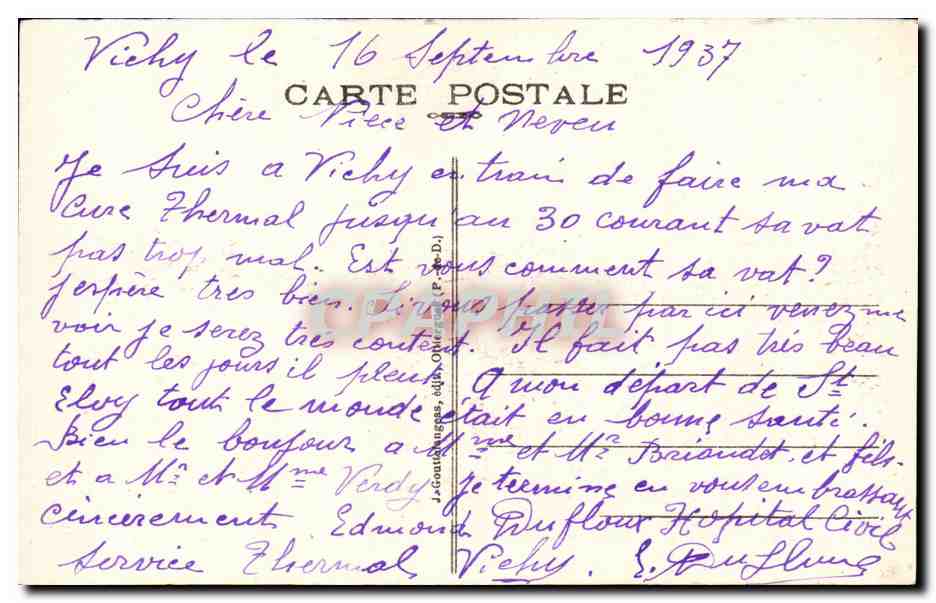 Vichy le 16 Septembre 1937
CARTE POSTALE
Chère Niece et Neveu
Je suis a Vichy en train de faire ma
Cure Thermal jusqu'au 30 courant sa vat
pas trop mal. Est vous comment sa vat?
J'espère tres bien. Si vous passer par ici venez me
voir je serez très content. Il fait pas très beau
tout les jours il pleut. A mon départ de St
Eloy tout le monde était en bonne santé.
Bien le bonjour a Mme et Mr Briandet et fils.
et a Mr et Mme Verdy Je termine en vous embrassant
cincerement Edmond Dufloux Hopital Civil
Service Thermal Vichy. E. Dufloux
CPAPHIL
J. Gouttefangeas, édit., Olliergues (P.-de-D.)